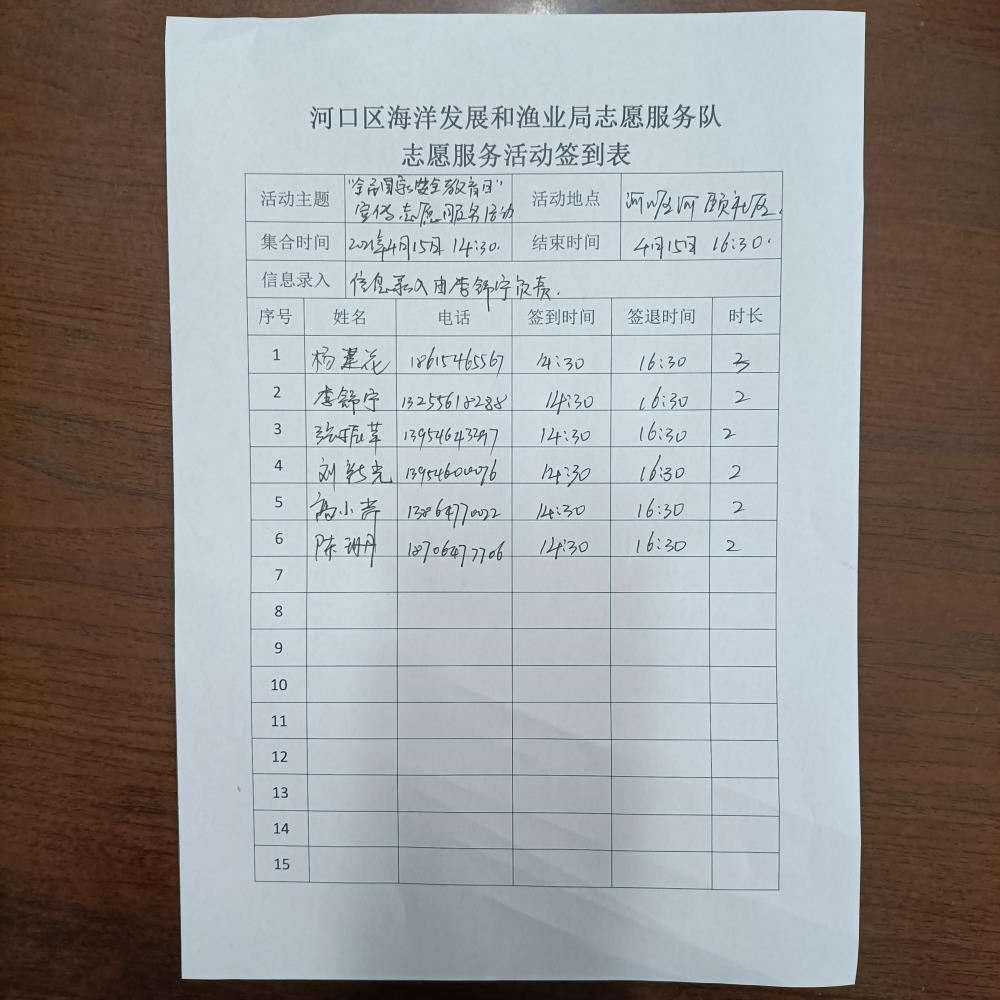 河口区海洋发展和渔业局志愿服务队
志愿服务活动签到表
活动主题 "全民国家安全教育日" 活动地点 河口区河颐社区.
宣传志愿服务活动
集合时间 4月15日 14:30. 结束时间 4月15日 16:30.
信息录入 信息录入由李舒宁负责.
序号 姓名 电话 签到时间 签退时间 时长
1 杨莲花 18615465567 14:30 16:30
2 李舒宁 13255618288 14:30 16:30 2
3 13954643297 14:30 16:30 2
4 刘新光 14:30 16:30 2
5 高小 13864770022 14:30 16:30 2
6 陈珊丹 18706477706 14:30 16:30 2
7
8
9
10
11
12
13
14
15